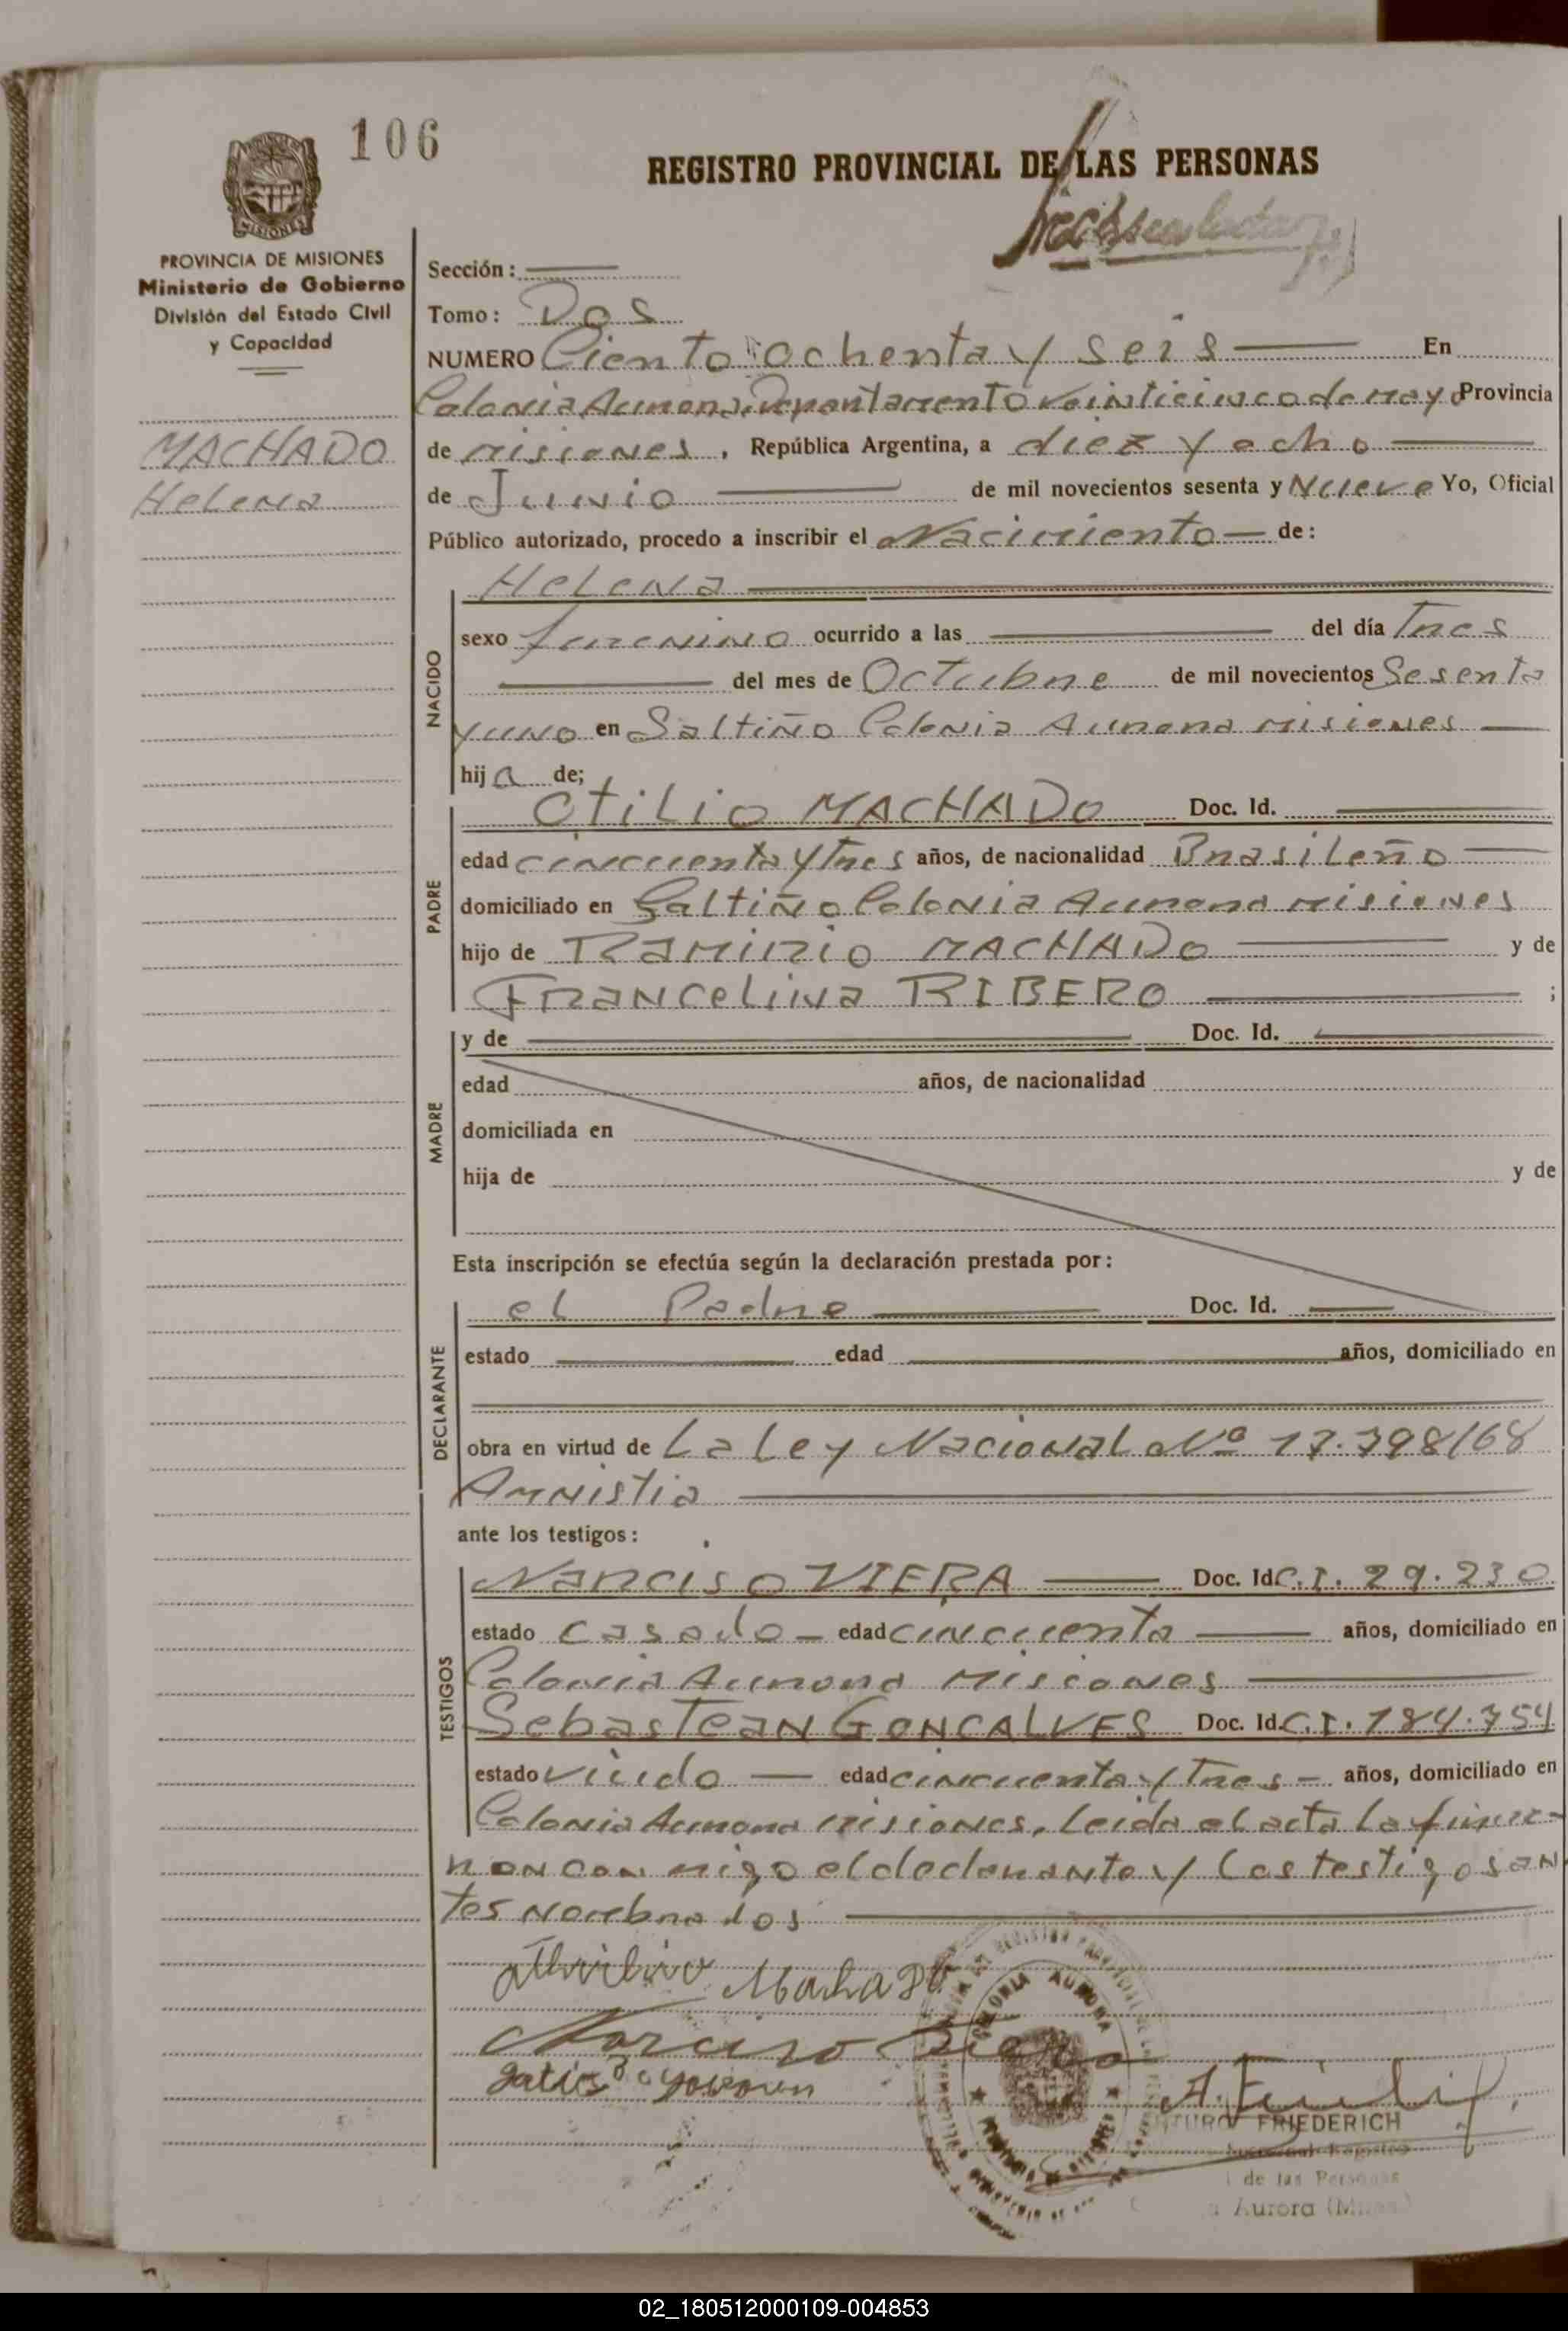 106
REGISTRO PROVINCIAL DE LAS PERSONAS
MISIONES
PROVINCIA DE MISIONES
Ministerio de Gobierno
División del Estado Civil
y Capacidad
MACHADO
Helena
Sección:
Tomo: Dos
NUMERO Ciento ochenta y seis En
Colonia Aurora, Departamento veinticinco de mayo Provincia
de misiones, República Argentina, a diez y ocho
de Junio de mil novecientos sesenta y Nueve Yo, Oficial
Público autorizado, procedo a inscribir el Nacimiento de:
NACIDO
Helena
sexo femenino ocurrido a las del día Tres
del mes de Octubre de mil novecientos Sesenta
y uno en Saltiño Colonia Aurora misiones
hija de;
PADRE
Otilio MACHADO Doc. Id.
edad cincuenta y tres años, de nacionalidad Brasileño
domiciliado en Saltiño Colonia Aurora misiones
hijo de Ramirio MACHADO y de
Francelina RIBERO ;
MADRE
y de Doc. Id.
edad años, de nacionalidad
domiciliada en
hija de y de
Esta inscripción se efectúa según la declaración prestada por:
DECLARANTE
el Padre Doc. Id.
estado edad años, domiciliado en
obra en virtud de La Ley Nacional Nº 17.398/68
Amnistia
ante los testigos:
TESTIGOS
Narciso VIERA Doc. Id C.I. 29.230
estado casado edad cincuenta años, domiciliado en
Colonia Aurora Misiones
Sebastean GONCALVES Doc. Id C.I. 184.354
estado viudo edad cincuenta y tres años, domiciliado en
Colonia Aurora misiones, leida el acta la firma
ron con migo el declarante y los testigos an
tes nombrados
Machado
Narciso Viera
COLONIA AURORA
ARTURO FRIEDERICH
de las Personas
Aurora
02_180512000109-004853